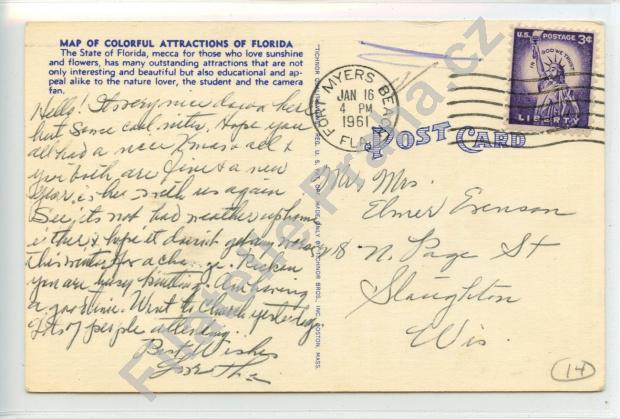 MAP OF COLORFUL ATTRACTIONS OF FLORIDA
The State of Florida, mecca for those who love sunshine
and flowers, has many outstanding attractions that are not
only interesting and beautiful but also educational and ap-
peal alike to the nature lover, the student and the camera
fan.
Hello! It very nice down here
but some cool nites. Hope you
all had a nice Xmas & all
you both are fine & a new
Year is here with us again
See, its not bad weather up home
is there & hope it doesn't get
this winter for a change.
you are busy knitting. Am having
a good time. Went to Church yesterday
Lots of people attending.
Best Wishes
U.S. POSTAGE 3¢
IN GOD WE TRUST
LIBERTY
FORT MYERS BEACH
JAN 16
4 PM
1961
FLA.
POST CARD
Mr. Mrs.
Elmer Evenson
N. Page St
Stoughton
Wis.
14
Filatelie-Praha.cz